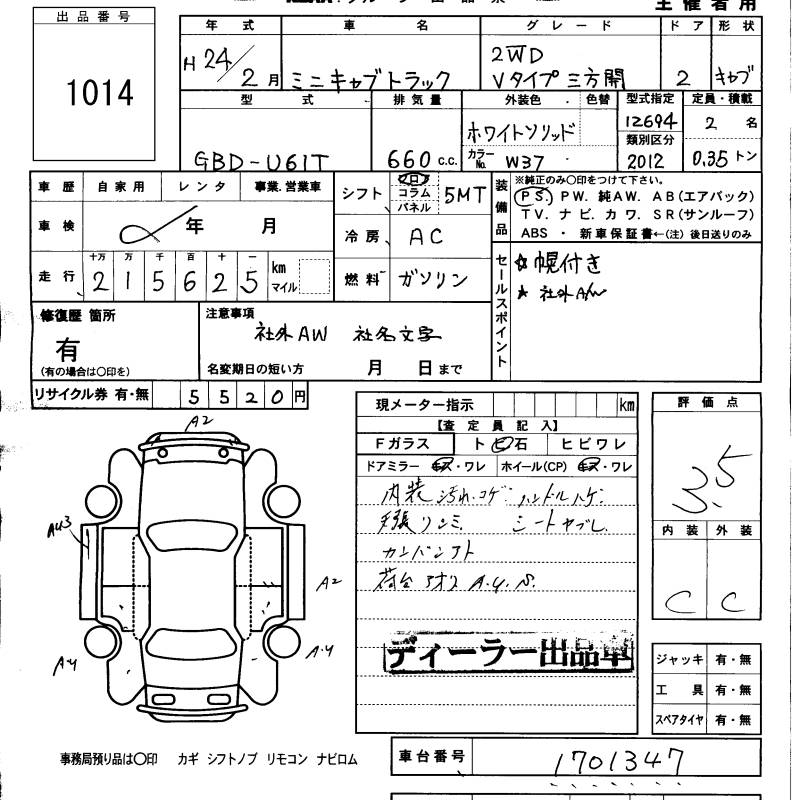 主催者用
出品番号
1014
年式 車名 グレード ドア 形状
H24/2月 ミニキャブトラック 2WD Vタイプ 三方開 2 キャブ
型式 排気量 外装色・色替 型式指定 定員・積載
GBD-U61T 660c.c. ホワイトソリッド 12694 2名
カラーNo. W37 類別区分 2012 0.35トン
車歴 自家用 レンタ 事業.営業車
車検 年 月
走行 十万 万 千 百 十 一
215625 km マイル
シフト フロア コラム パネル 5MT
冷房 AC
燃料 ガソリン
装備品 ※純正のみ〇印をつけて下さい。
PS. PW. 純AW. AB(エアバック)
TV. ナビ. カワ. SR(サンルーフ)
ABS ・ 新車保証書←(注)後日送りのみ
セールスポイント
☆幌付き
★社外A/W
修復歴 箇所
有
(有の場合は〇印を)
注意事項
社外AW 社名文字
名変期日の短い方 月 日まで
リサイクル券 有・無 5520円
現メーター指示 km
【査定員記入】
Fガラス ト ビ 石 ヒビワレ
ドアミラー キズ・ワレ ホイール(CP) キズ・ワレ
内装 汚れ.コゲ ハンドルハゲ
天張リシミ シートヤブレ.
カンバンアト
荷台 アオリ A.Y.S.
ディーラー出品車
評価点
3.5
内装 外装
C C
A2
A43
A2
A4
A.4
ジャッキ 有・無
工具 有・無
スペアタイヤ 有・無
事務局預り品は〇印 カギ シフトノブ リモコン ナビロム
車台番号 1701347